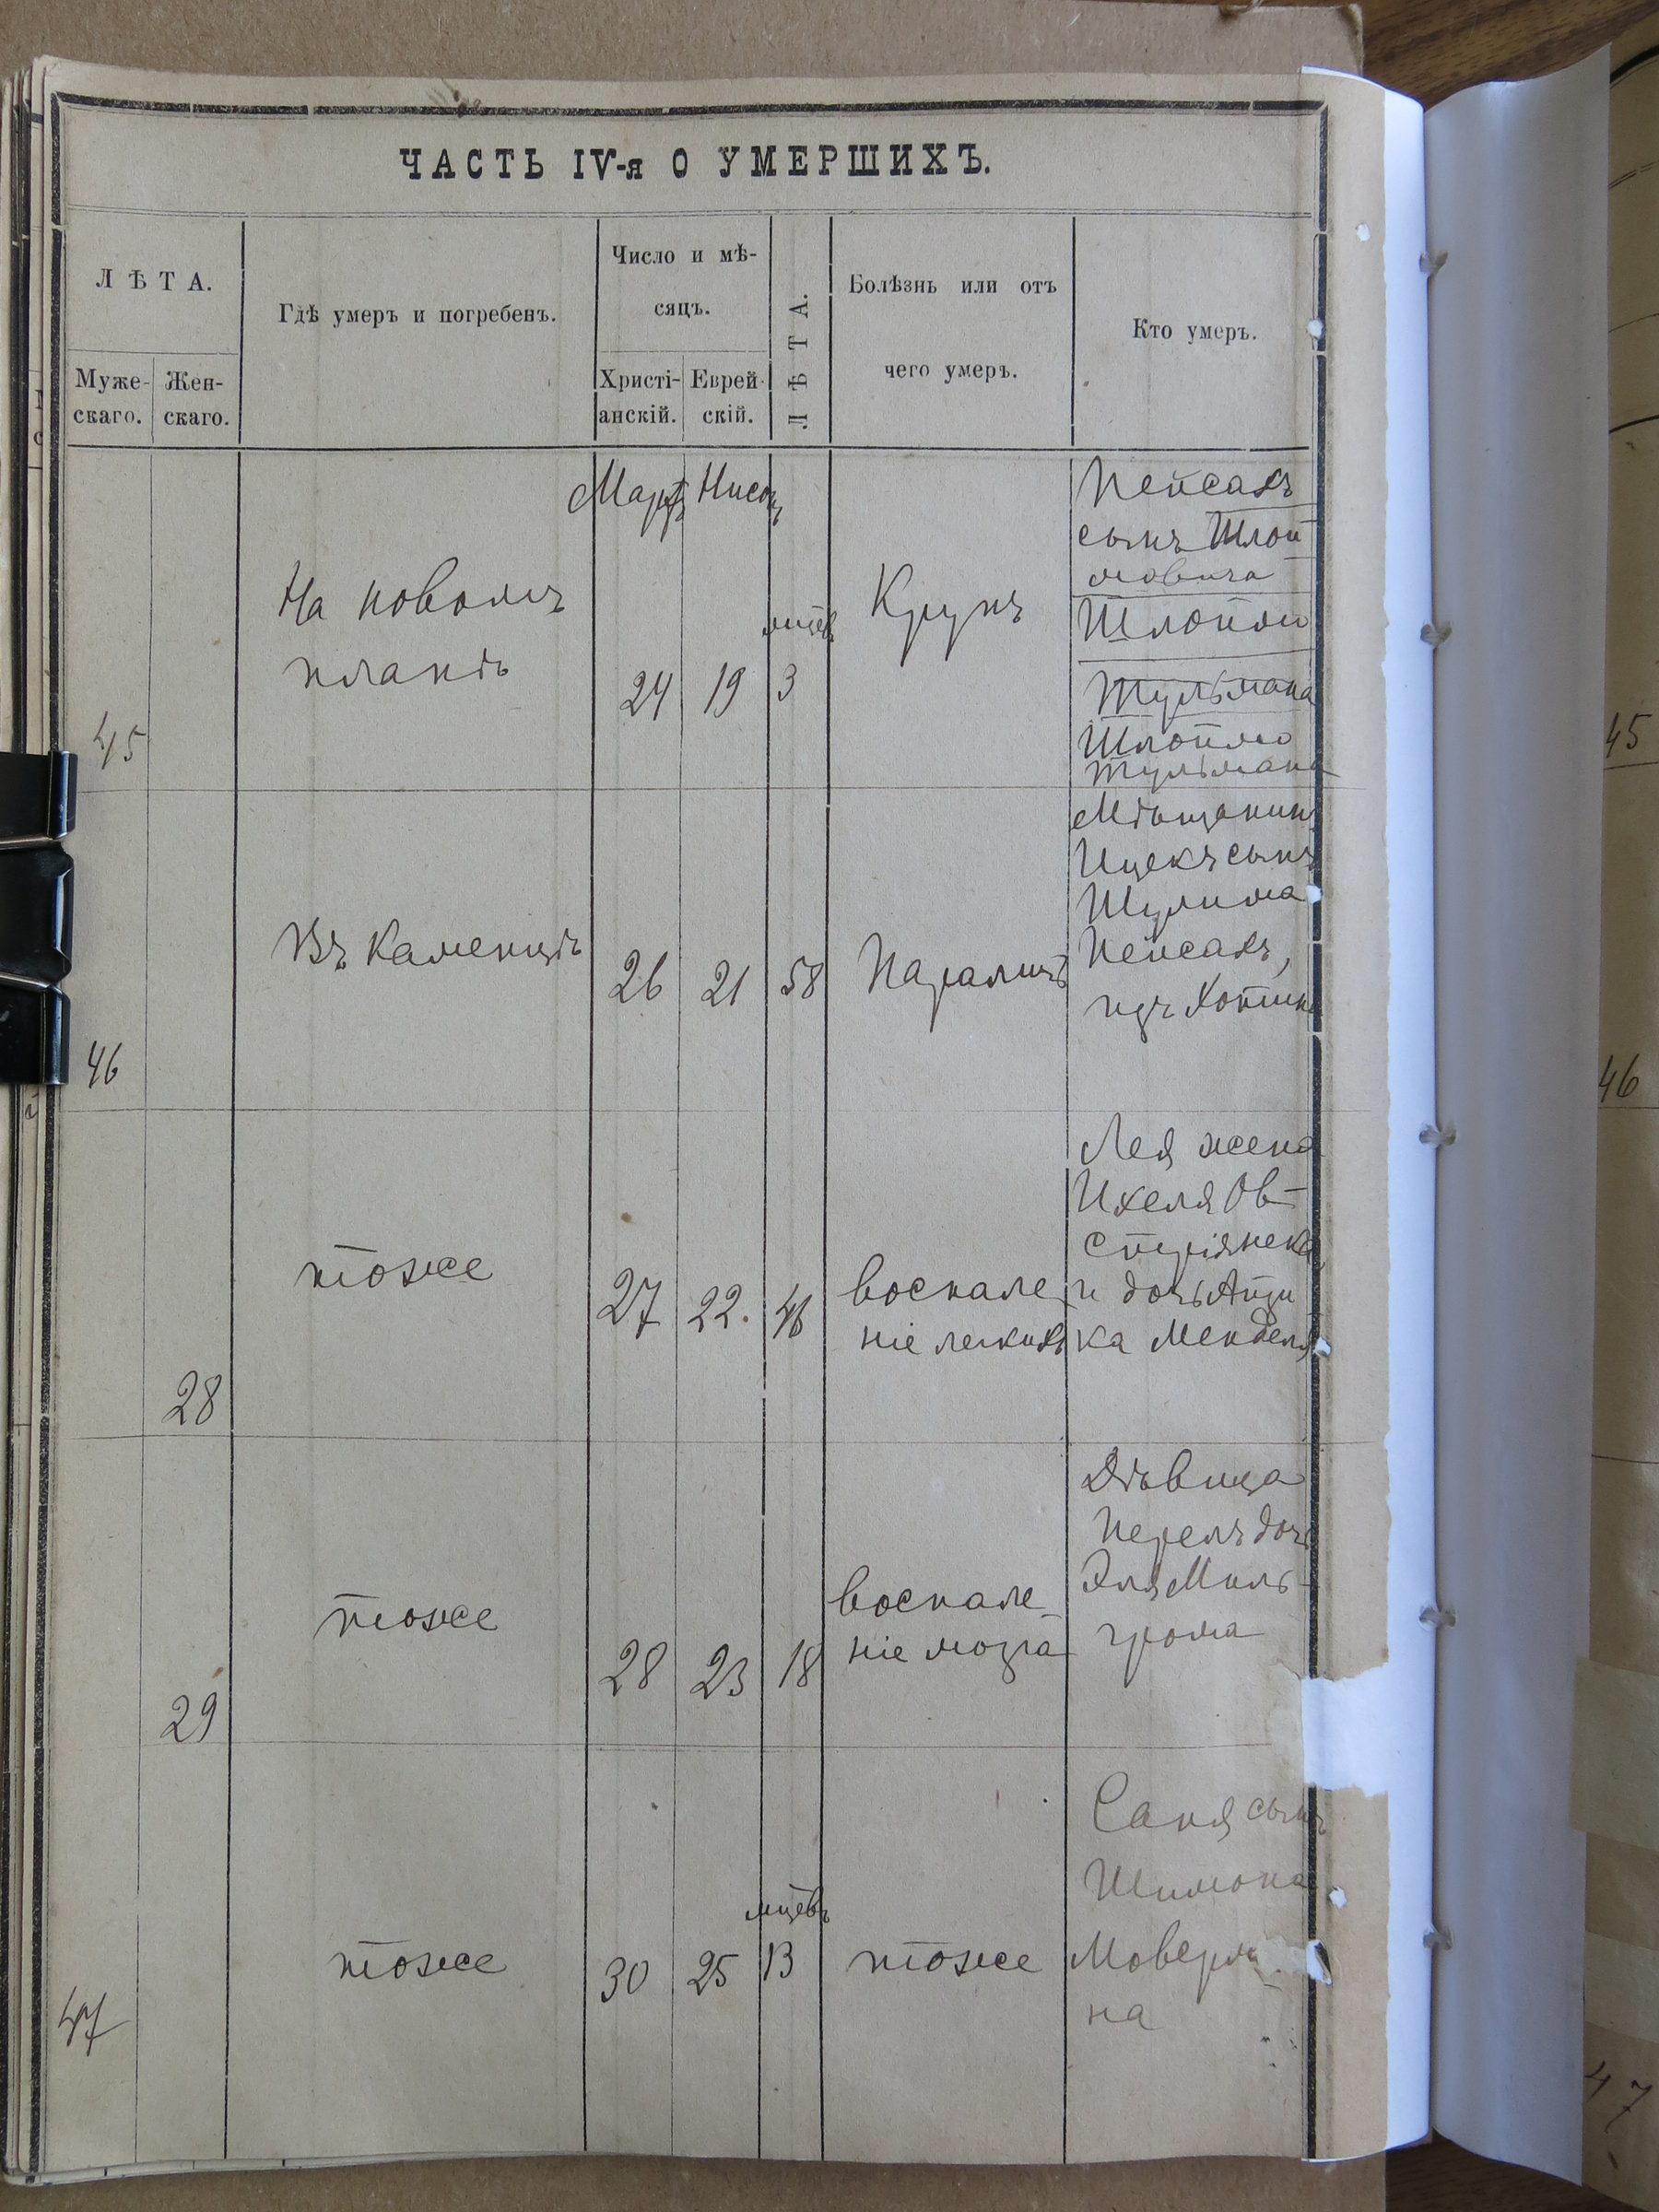 ЧАСТЬ IV-я О УМЕРШИХЪ.
ЛѢТА.
Муже-
скаго.
Жен-
скаго.
Гдѣ умеръ и погребенъ.
Число и мѣ-
сяцъ.
Христі-
анскій.
Еврей-
скій.
ЛѢТА.
Болѣзнь или отъ
чего умеръ.
Кто умеръ.
Мартъ Нисонъ
45
На новомъ
планѣ
24
19
мцѣв
3
Крупъ
Пейсахъ
сынъ Шлой
мовича
Шлойми
Шульмана
Шлоймо
Шульмана
46
Въ Каменцѣ
26
21
58
Параличъ
Мѣщанинъ
Ицекъ сынъ
Шулима
Пейсахъ,
изъ Хотина
28
тоже
27
22.
46
воспале
ніе легкихъ
Лея жена
Ихеля Ов-
и дочь Айзи
ка Менделя
29
тоже
28
23
18
воспале-
ніе мозга
Дѣвица
Перелъ дочь
Эля Миль-
грома
47
тоже
30
25
мцѣвъ
13
тоже
Саня сынъ
Шимона
на
45
46
47